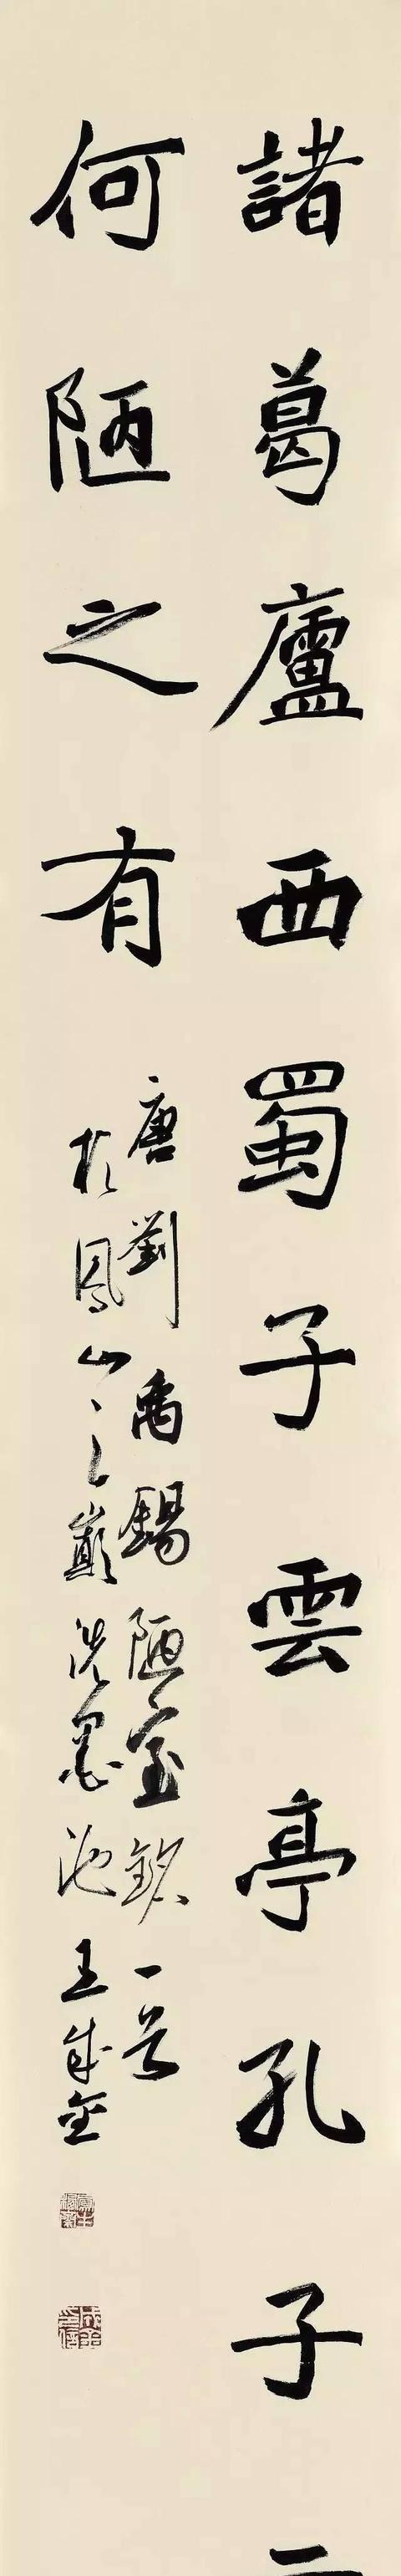 諸葛廬西蜀子雲亭孔子
何陋之有
唐劉禹錫陋室銘一首
於鳳山之巔洗墨池王成金